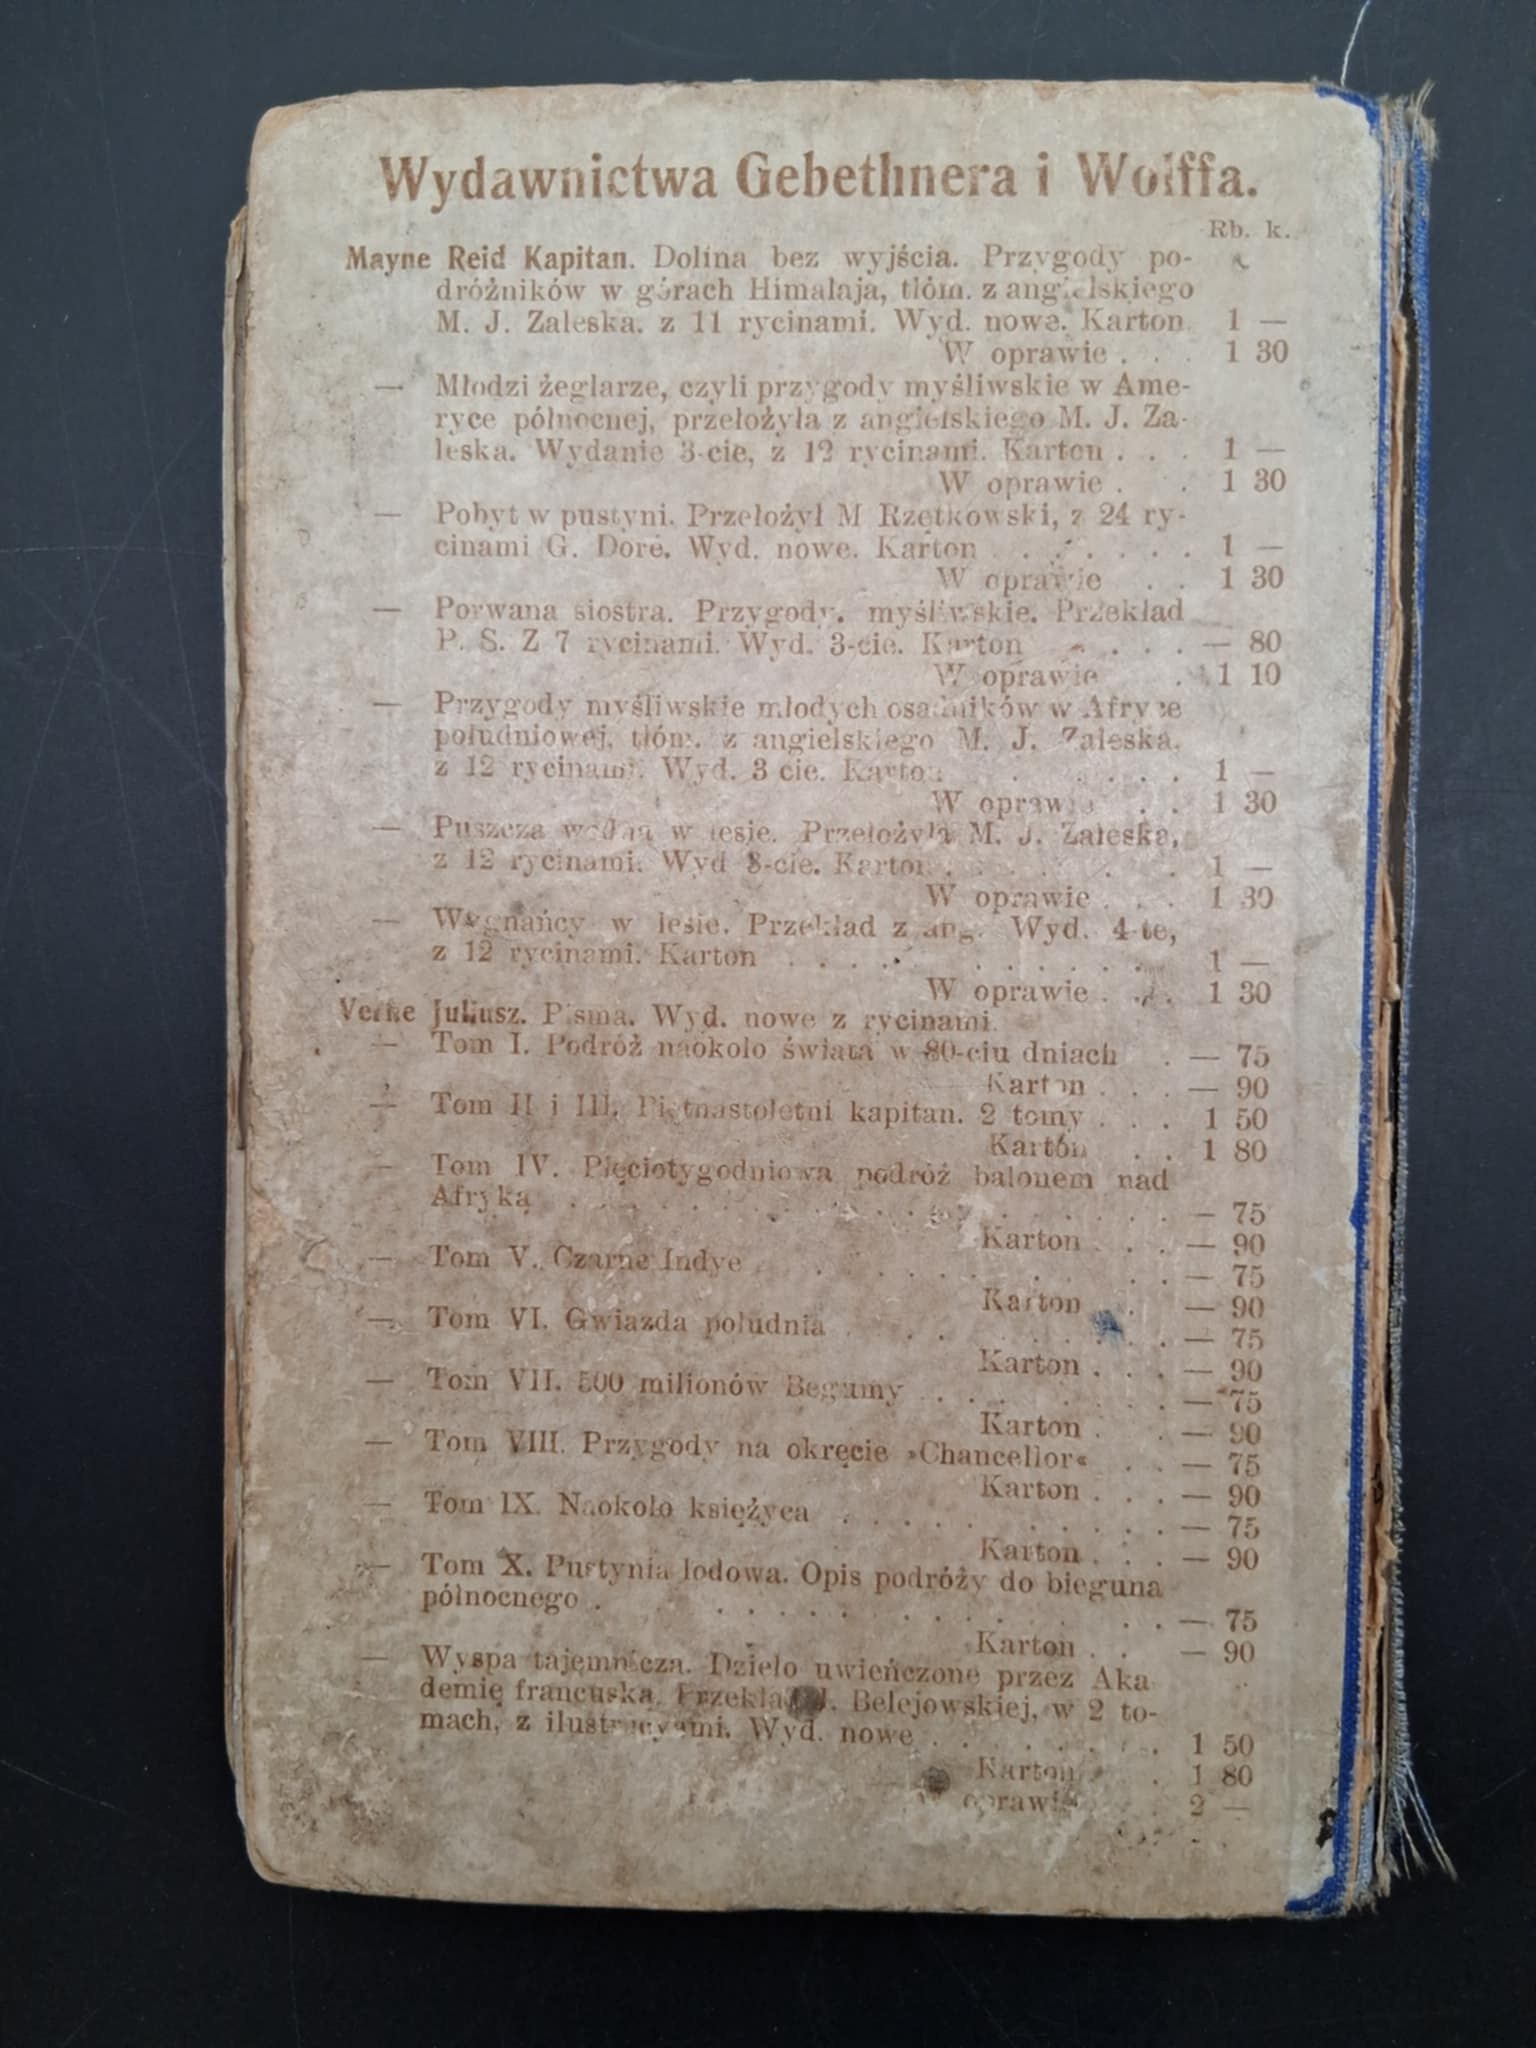 Wydawnictwa Gebethnera i Wolffa.
Rb. k.
Mayne Reid Kapitan. Dolina bez wyjścia. Przygody po-
dróżników w górach Himalaja, tłóm. z angielskiego
M. J. Zaleska. z 11 rycinami. Wyd. nowe. Karton 1 —
W oprawie . . . 1 30
— Młodzi żeglarze, czyli przygody myśliwskie w Ame-
ryce północnej, przełożyła z angielskiego M. J. Za-
leska. Wydanie 3-cie, z 12 rycinami. Karton . . . 1 —
W oprawie . . 1 30
— Pobyt w pustyni. Przełożył M Rzętkowski, z 24 ry-
cinami G. Doré. Wyd. nowe. Karton . . . . . . . 1 —
W oprawie . . 1 30
— Porwana siostra. Przygody. myśliwskie. Przekład
P. S. Z 7 rycinami. Wyd. 3-cie. Karton . . . . — 80
W oprawie . 1 10
— Przygody myśliwskie młodych osadników w Afryce
południowej, tłóm. z angielskiego M. J. Zaleska,
z 12 rycinami. Wyd. 3 cie. Karton . . . . . 1 —
W oprawie . . 1 30
— Puszcza wodna w lesie. Przełożyła M. J. Zaleska,
z 12 rycinami. Wyd 3-cie. Karton . . . . . 1 —
W oprawie . . . 1 30
— Wygnańcy w lesie. Przekład z ang. Wyd. 4-te,
z 12 rycinami. Karton . . . . . . . . . . 1 —
W oprawie . . . 1 30
Verne Juliusz. Pisma. Wyd. nowe z rycinami.
— Tom I. Podróż naokoło świata w 80-ciu dniach . — 75
Karton . . . — 90
— Tom II i III. Piętnastoletni kapitan. 2 tomy . . . 1 50
Karton . . 1 80
— Tom IV. Pięciotygodniowa podróż balonem nad
Afryką . . . . . . . . . . . . . . . . — 75
Karton . . . — 90
— Tom V. Czarne Indye . . . . . . . . . — 75
Karton . — 90
— Tom VI. Gwiazda południa . . . . . . . . — 75
Karton . . . — 90
— Tom VII. 500 milionów Begumy . . . . . . . — 75
Karton . . — 90
— Tom VIII. Przygody na okręcie »Chancellor« . . — 75
Karton . . . — 90
— Tom IX. Naokoło księżyca . . . . . . . . . . — 75
Karton . . . — 90
— Tom X. Pustynia lodowa. Opis podróży do bieguna
północnego . . . . . . . . . . . . . . — 75
Karton . . — 90
— Wyspa tajemnicza. Dzieło uwieńczone przez Aka
demię francuską. Przekład J. Belejowskiej, w 2 to-
mach, z ilustracyami. Wyd. nowe . . . . . . . . 1 50
Karton . 1 80
W oprawie . 2 —